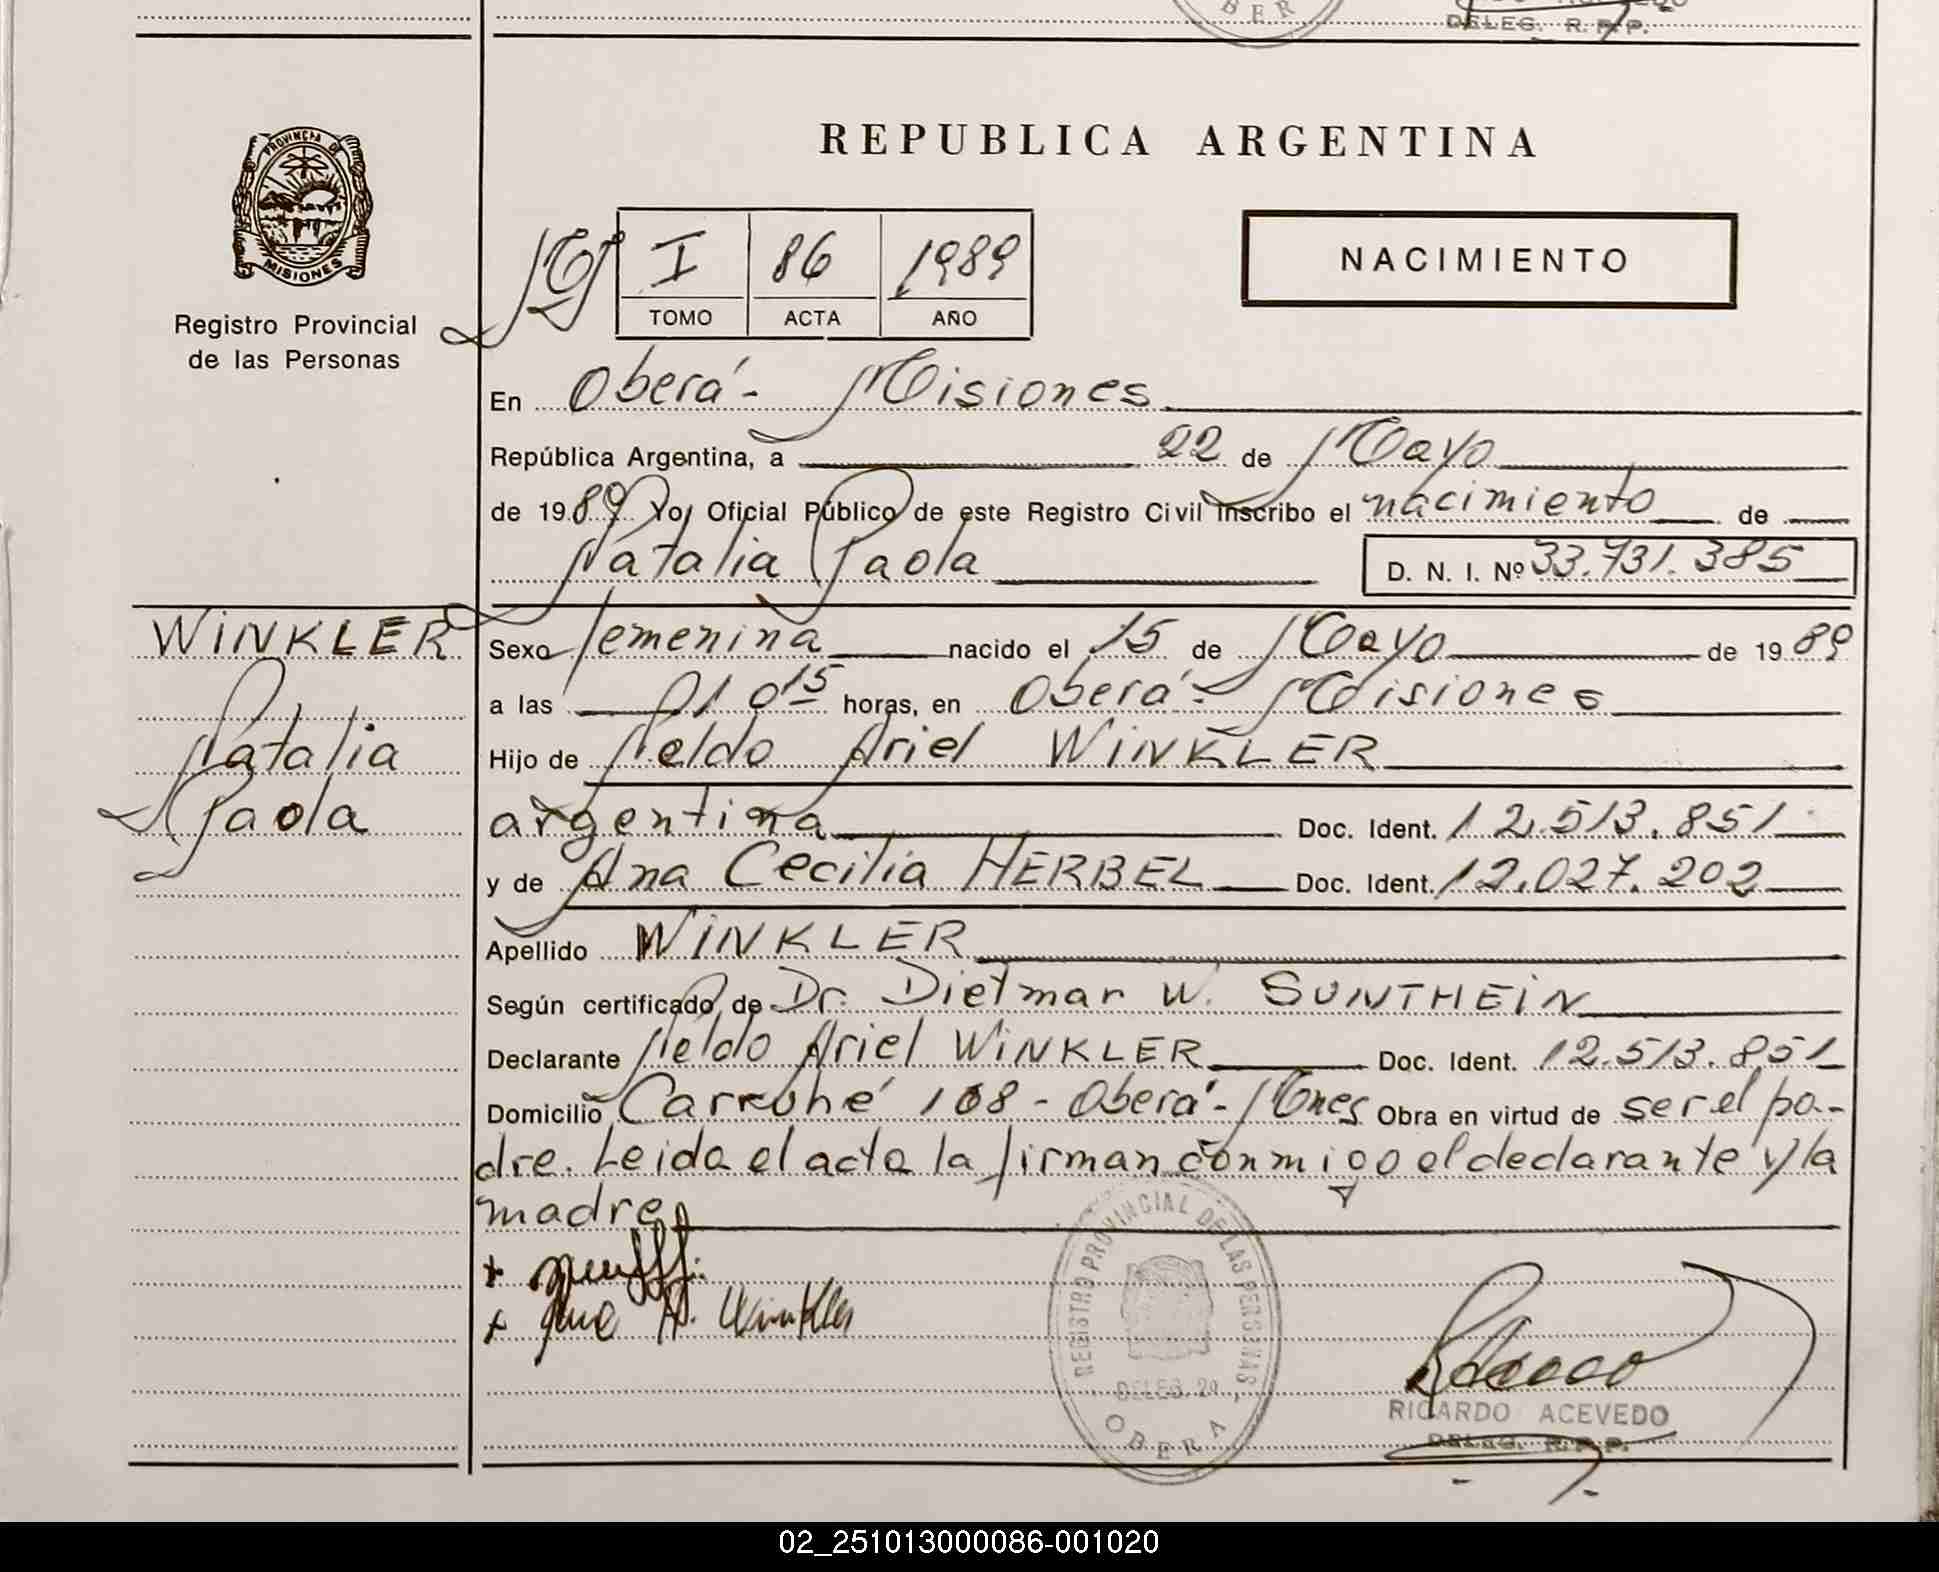 BER
DELEG. R.P.P.
PROVINCIA DE
MISIONES
Registro Provincial
de las Personas
REPUBLICA ARGENTINA
I 86 1989
TOMO ACTA AÑO
NACIMIENTO
En Oberá - Misiones
República Argentina, a 22 de Mayo
de 1989 Yo, Oficial Público de este Registro Civil inscribo el nacimiento de
Natalia Paola D. N. I. Nº 33.731.385
WINKLER
Natalia
Paola
Sexo femenina nacido el 15 de Mayo de 1989
a las 01 0 15 horas, en Oberá - Misiones
Hijo de Neldo Ariel WINKLER
argentina Doc. Ident. 12.513.851
y de Ana Cecilia HERBEL Doc. Ident. 12.027.202
Apellido WINKLER
Según certificado de Dr. Dietmar W. SUNTHEIN
Declarante Neldo Ariel WINKLER Doc. Ident. 12.513.851
Domicilio Carruhé 108 - Oberá - Mnes Obra en virtud de ser el pa-
dre. Leida el acta la firman conmigo el declarante y la
madre
+
+ Ana H. Winkler
REGISTRO PROVINCIAL DE LAS PERSONAS
DELEG. 20
OBERA
RICARDO ACEVEDO
DELEG. R.P.P.
02_251013000086-001020